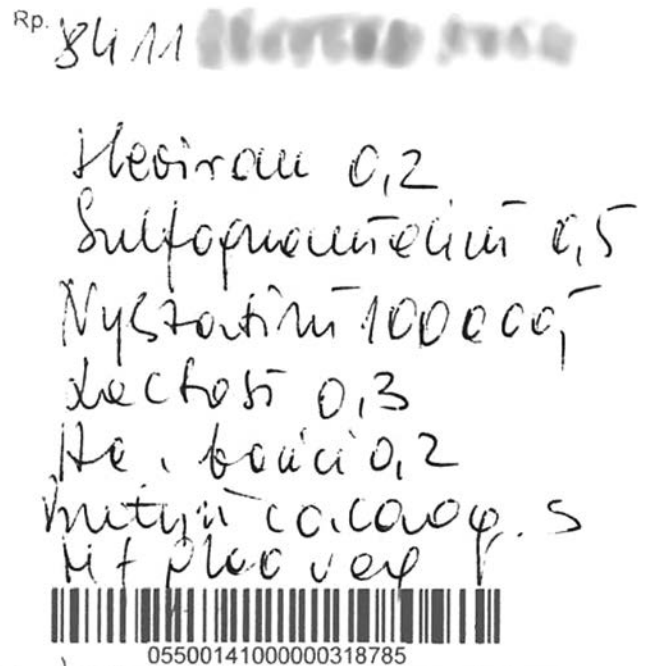 Rp. 8411
Heviran 0,2
Sulfaguanidini 0,5
Nystatini 100000j
Lactosi 0,3
Ac. borici 0,2
Butyri cacao q. s
M f glob vag
05500141000000318785